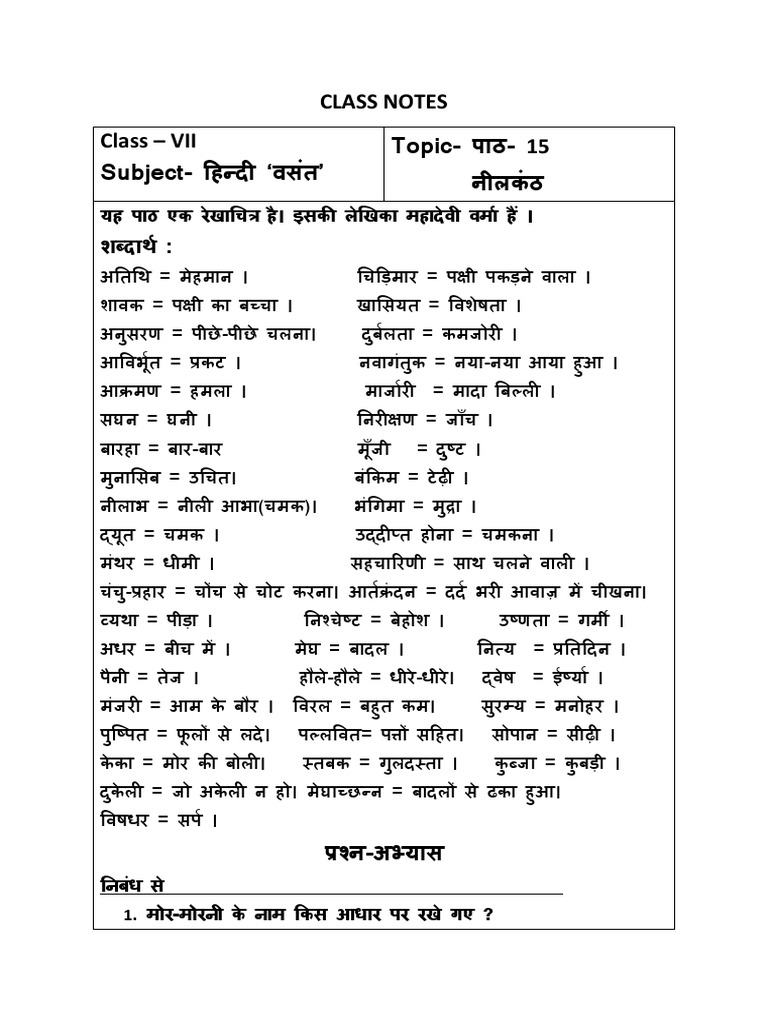 CLASS NOTES
Class – VII
Subject- हिन्दी ‘वसंत’
Topic- पाठ- 15
नीलकंठ
यह पाठ एक रेखाचित्र है। इसकी लेखिका महादेवी वर्मा हैं ।
शब्दार्थ :
अतिथि = मेहमान । चिड़िमार = पक्षी पकड़ने वाला ।
शावक = पक्षी का बच्चा । खासियत = विशेषता ।
अनुसरण = पीछे-पीछे चलना। दुर्बलता = कमजोरी ।
आविर्भूत = प्रकट । नवागंतुक = नया-नया आया हुआ ।
आक्रमण = हमला । मार्जारी = मादा बिल्ली ।
सघन = घनी । निरीक्षण = जाँच ।
बारहा = बार-बार मूँजी = दुष्ट ।
मुनासिब = उचित। बंकिम = टेढ़ी ।
नीलाभ = नीली आभा(चमक)। भंगिमा = मुद्रा ।
द्यूत = चमक । उद्दीप्त होना = चमकना ।
मंथर = धीमी । सहचारिणी = साथ चलने वाली ।
चंचु-प्रहार = चोंच से चोट करना। आर्तक्रंदन = दर्द भरी आवाज़ में चीखना।
व्यथा = पीड़ा । निश्चेष्ट = बेहोश । उष्णता = गर्मी ।
अधर = बीच में । मेघ = बादल । नित्य = प्रतिदिन ।
पैनी = तेज । हौले-हौले = धीरे-धीरे। द्वेष = ईर्ष्या ।
मंजरी = आम के बौर । विरल = बहुत कम। सुरम्य = मनोहर ।
पुष्पित = फूलों से लदे। पल्लवित= पत्तों सहित। सोपान = सीढ़ी ।
केका = मोर की बोली। स्तबक = गुलदस्ता । कुब्जा = कुबड़ी ।
दुकेली = जो अकेली न हो। मेघाच्छन्न = बादलों से ढका हुआ।
विषधर = सर्प ।
प्रश्न-अभ्यास
निबंध से
1. मोर-मोरनी के नाम किस आधार पर रखे गए ?